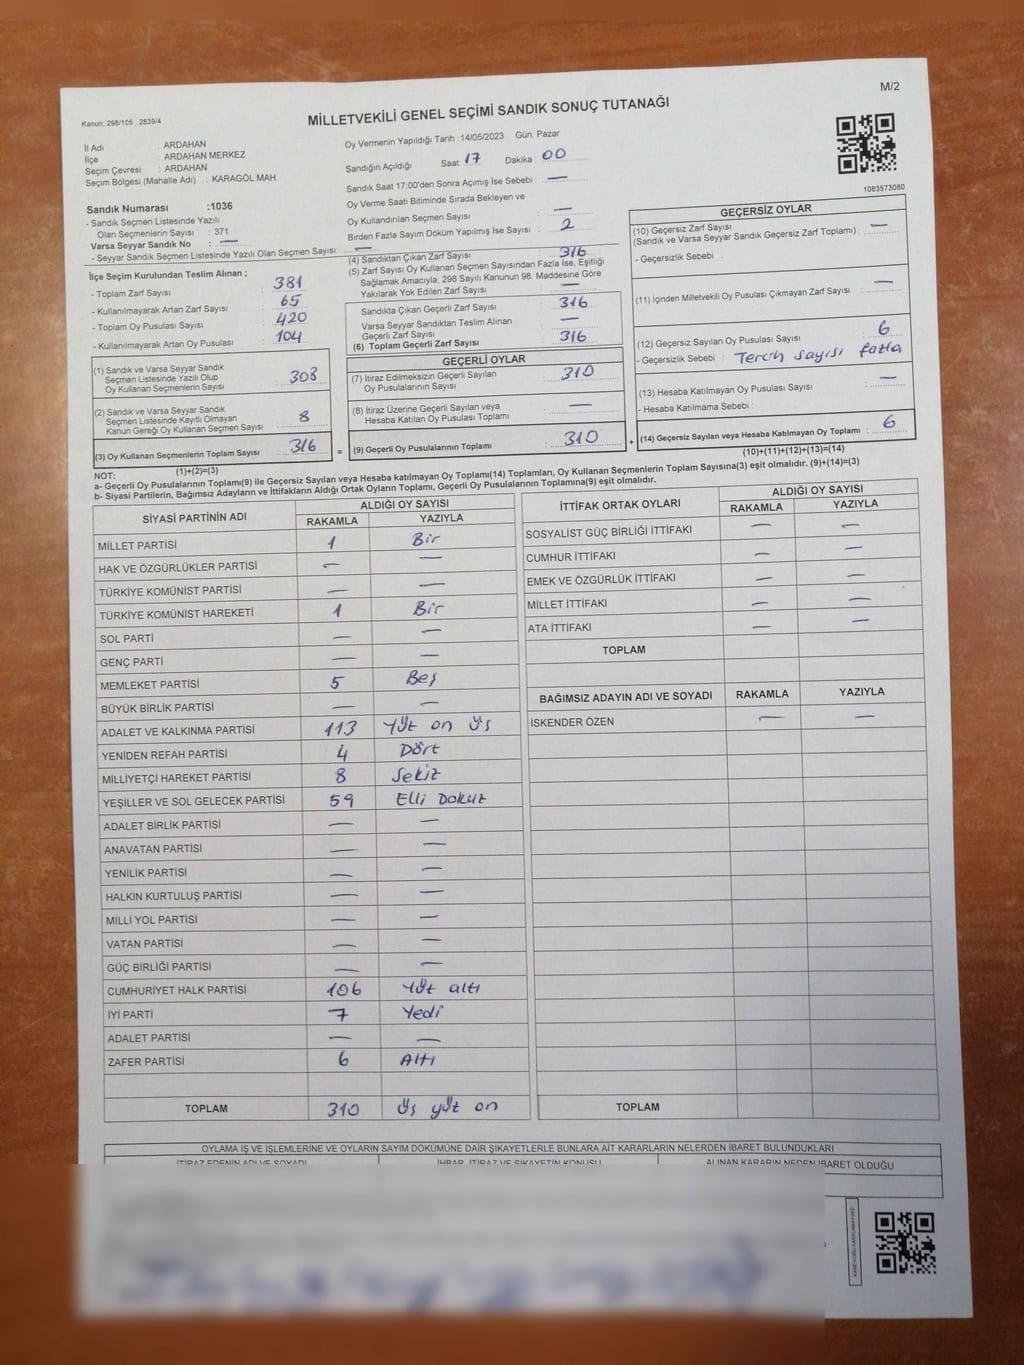 M/2
Kanun: 298/105 , 2839/4
MİLLETVEKİLİ GENEL SEÇİMİ SANDIK SONUÇ TUTANAĞI
İl Adı : ARDAHAN
İlçe : ARDAHAN MERKEZ
Seçim Çevresi : ARDAHAN
Seçim Bölgesi (Mahalle Adı) : KARAGÖL MAH.
Sandık Numarası :1036
- Sandık Seçmen Listesinde Yazılı
Olan Seçmenlerin Sayısı : 371
Varsa Seyyar Sandık No : —
- Seyyar Sandık Seçmen Listesinde Yazılı Olan Seçmen Sayısı: —
Oy Vermenin Yapıldığı Tarih :14/05/2023 Gün: Pazar
Sandığın Açıldığı Saat : 17 Dakika : 00
Sandık Saat 17:00'den Sonra Açımış İse Sebebi : —
Oy Verme Saati Bitiminde Sırada Bekleyen ve
Oy Kullandırılan Seçmen Sayısı : —
Birden Fazla Sayım Döküm Yapılmış İse Sayısı : 2
1083573080
İlçe Seçim Kurulundan Teslim Alınan ;
- Toplam Zarf Sayısı : 381
- Kullanılmayarak Artan Zarf Sayısı : 65
- Toplam Oy Pusulası Sayısı : 420
- Kullanılmayarak Artan Oy Pusulası : 104
(1) Sandık ve Varsa Seyyar Sandık
Seçmen Listesinde Yazılı Olup
Oy Kullanan Seçmenlerin Sayısı : 308
(2) Sandık ve Varsa Seyyar Sandık
Seçmen Listesinde Kayıtlı Olmayan
Kanun Gereği Oy Kullanan Seçmen Sayısı : 8
(3) Oy Kullanan Seçmenlerin Toplam Sayısı : 316
(1)+(2)=(3)
(4) Sandıktan Çıkan Zarf Sayısı : 316
(5) Zarf Sayısı Oy Kullanan Seçmen Sayısından Fazla İse, Eşitliği
Sağlamak Amacıyla; 298 Sayılı Kanunun 98. Maddesine Göre
Yakılarak Yok Edilen Zarf Sayısı : —
Sandıkta Çıkan Geçerli Zarf Sayısı : 316
Varsa Seyyar Sandıktan Teslim Alınan
Geçerli Zarf Sayısı : —
(6) Toplam Geçerli Zarf Sayısı : 316
GEÇERLİ OYLAR
(7) İtiraz Edilmeksizin Geçerli Sayılan
Oy Pusulalarının Sayısı : 310
(8) İtiraz Üzerine Geçerli Sayılan veya
Hesaba Katılan Oy Pusulası Toplamı : —
= (9) Geçerli Oy Pusulalarının Toplamı : 310
GEÇERSİZ OYLAR
(10) Geçersiz Zarf Sayısı
(Sandık ve Varsa Seyyar Sandık Geçersiz Zarf Toplamı) : —
- Geçersizlik Sebebi :
(11) İçinden Milletvekili Oy Pusulası Çıkmayan Zarf Sayısı : —
(12) Geçersiz Sayılan Oy Pusulası Sayısı : 6
- Geçersizlik Sebebi : Tercih sayısı fazla
(13) Hesaba Katılmayan Oy Pusulası Sayısı : —
- Hesaba Katılmama Sebebi :
+ (14) Geçersiz Sayılan veya Hesaba Katılmayan Oy Toplamı : 6
(10)+(11)+(12)+(13)=(14)
NOT:
a- Geçerli Oy Pusulasının Toplamı(9) ile Geçersiz Sayılan veya Hesaba katılmayan Oy Toplamı(14) Toplamları, Oy Kullanan Seçmenlerin Toplam Sayısına(3) eşit olmalıdır. (9)+(14)=(3)
b- Siyasi Partilerin, Bağımsız Adayların ve İttifakların Aldığı Ortak Oyların Toplamı, Geçerli Oy Pusulalarının Toplamına(9) eşit olmalıdır.
SİYASİ PARTİNİN ADI ALDIĞI OY SAYISI
RAKAMLA YAZIYLA
MİLLET PARTİSİ 1 Bir
HAK VE ÖZGÜRLÜKLER PARTİSİ — —
TÜRKİYE KOMÜNİST PARTİSİ — —
TÜRKİYE KOMÜNİST HAREKETİ 1 Bir
SOL PARTİ — —
GENÇ PARTİ — —
MEMLEKET PARTİSİ 5 Beş
BÜYÜK BİRLİK PARTİSİ — —
ADALET VE KALKINMA PARTİSİ 113 Yüz on üç
YENİDEN REFAH PARTİSİ 4 Dört
MİLLİYETÇİ HAREKET PARTİSİ 8 Sekiz
YEŞİLLER VE SOL GELECEK PARTİSİ 59 Elli Dokuz
ADALET BİRLİK PARTİSİ — —
ANAVATAN PARTİSİ — —
YENİLİK PARTİSİ — —
HALKIN KURTULUŞ PARTİSİ — —
MİLLİ YOL PARTİSİ — —
VATAN PARTİSİ — —
GÜÇ BİRLİĞİ PARTİSİ — —
CUMHURİYET HALK PARTİSİ 106 Yüz altı
İYİ PARTİ 7 Yedi
ADALET PARTİSİ — —
ZAFER PARTİSİ 6 Altı
TOPLAM 310 Üç yüz on
İTTİFAK ORTAK OYLARI ALDIĞI OY SAYISI
RAKAMLA YAZIYLA
SOSYALİST GÜÇ BİRLİĞİ İTTİFAKI — —
CUMHUR İTTİFAKI — —
EMEK VE ÖZGÜRLÜK İTTİFAKI — —
MİLLET İTTİFAKI — —
ATA İTTİFAKI — —
TOPLAM
BAĞIMSIZ ADAYIN ADI VE SOYADI RAKAMLA YAZIYLA
İSKENDER ÖZEN — —
TOPLAM
OYLAMA İŞ VE İŞLEMLERİNE VE OYLARIN SAYIM DÖKÜMÜNE DAİR ŞİKAYETLERLE BUNLARA AİT KARARLARIN NELERDEN İBARET BULUNDUKLARI
İTİRAZ EDENİN ADI VE SOYADI İHBAR, İTİRAZ VE ŞİKAYETİN KONUSU ALINAN KARARIN NEDEN İBARET OLDUĞU